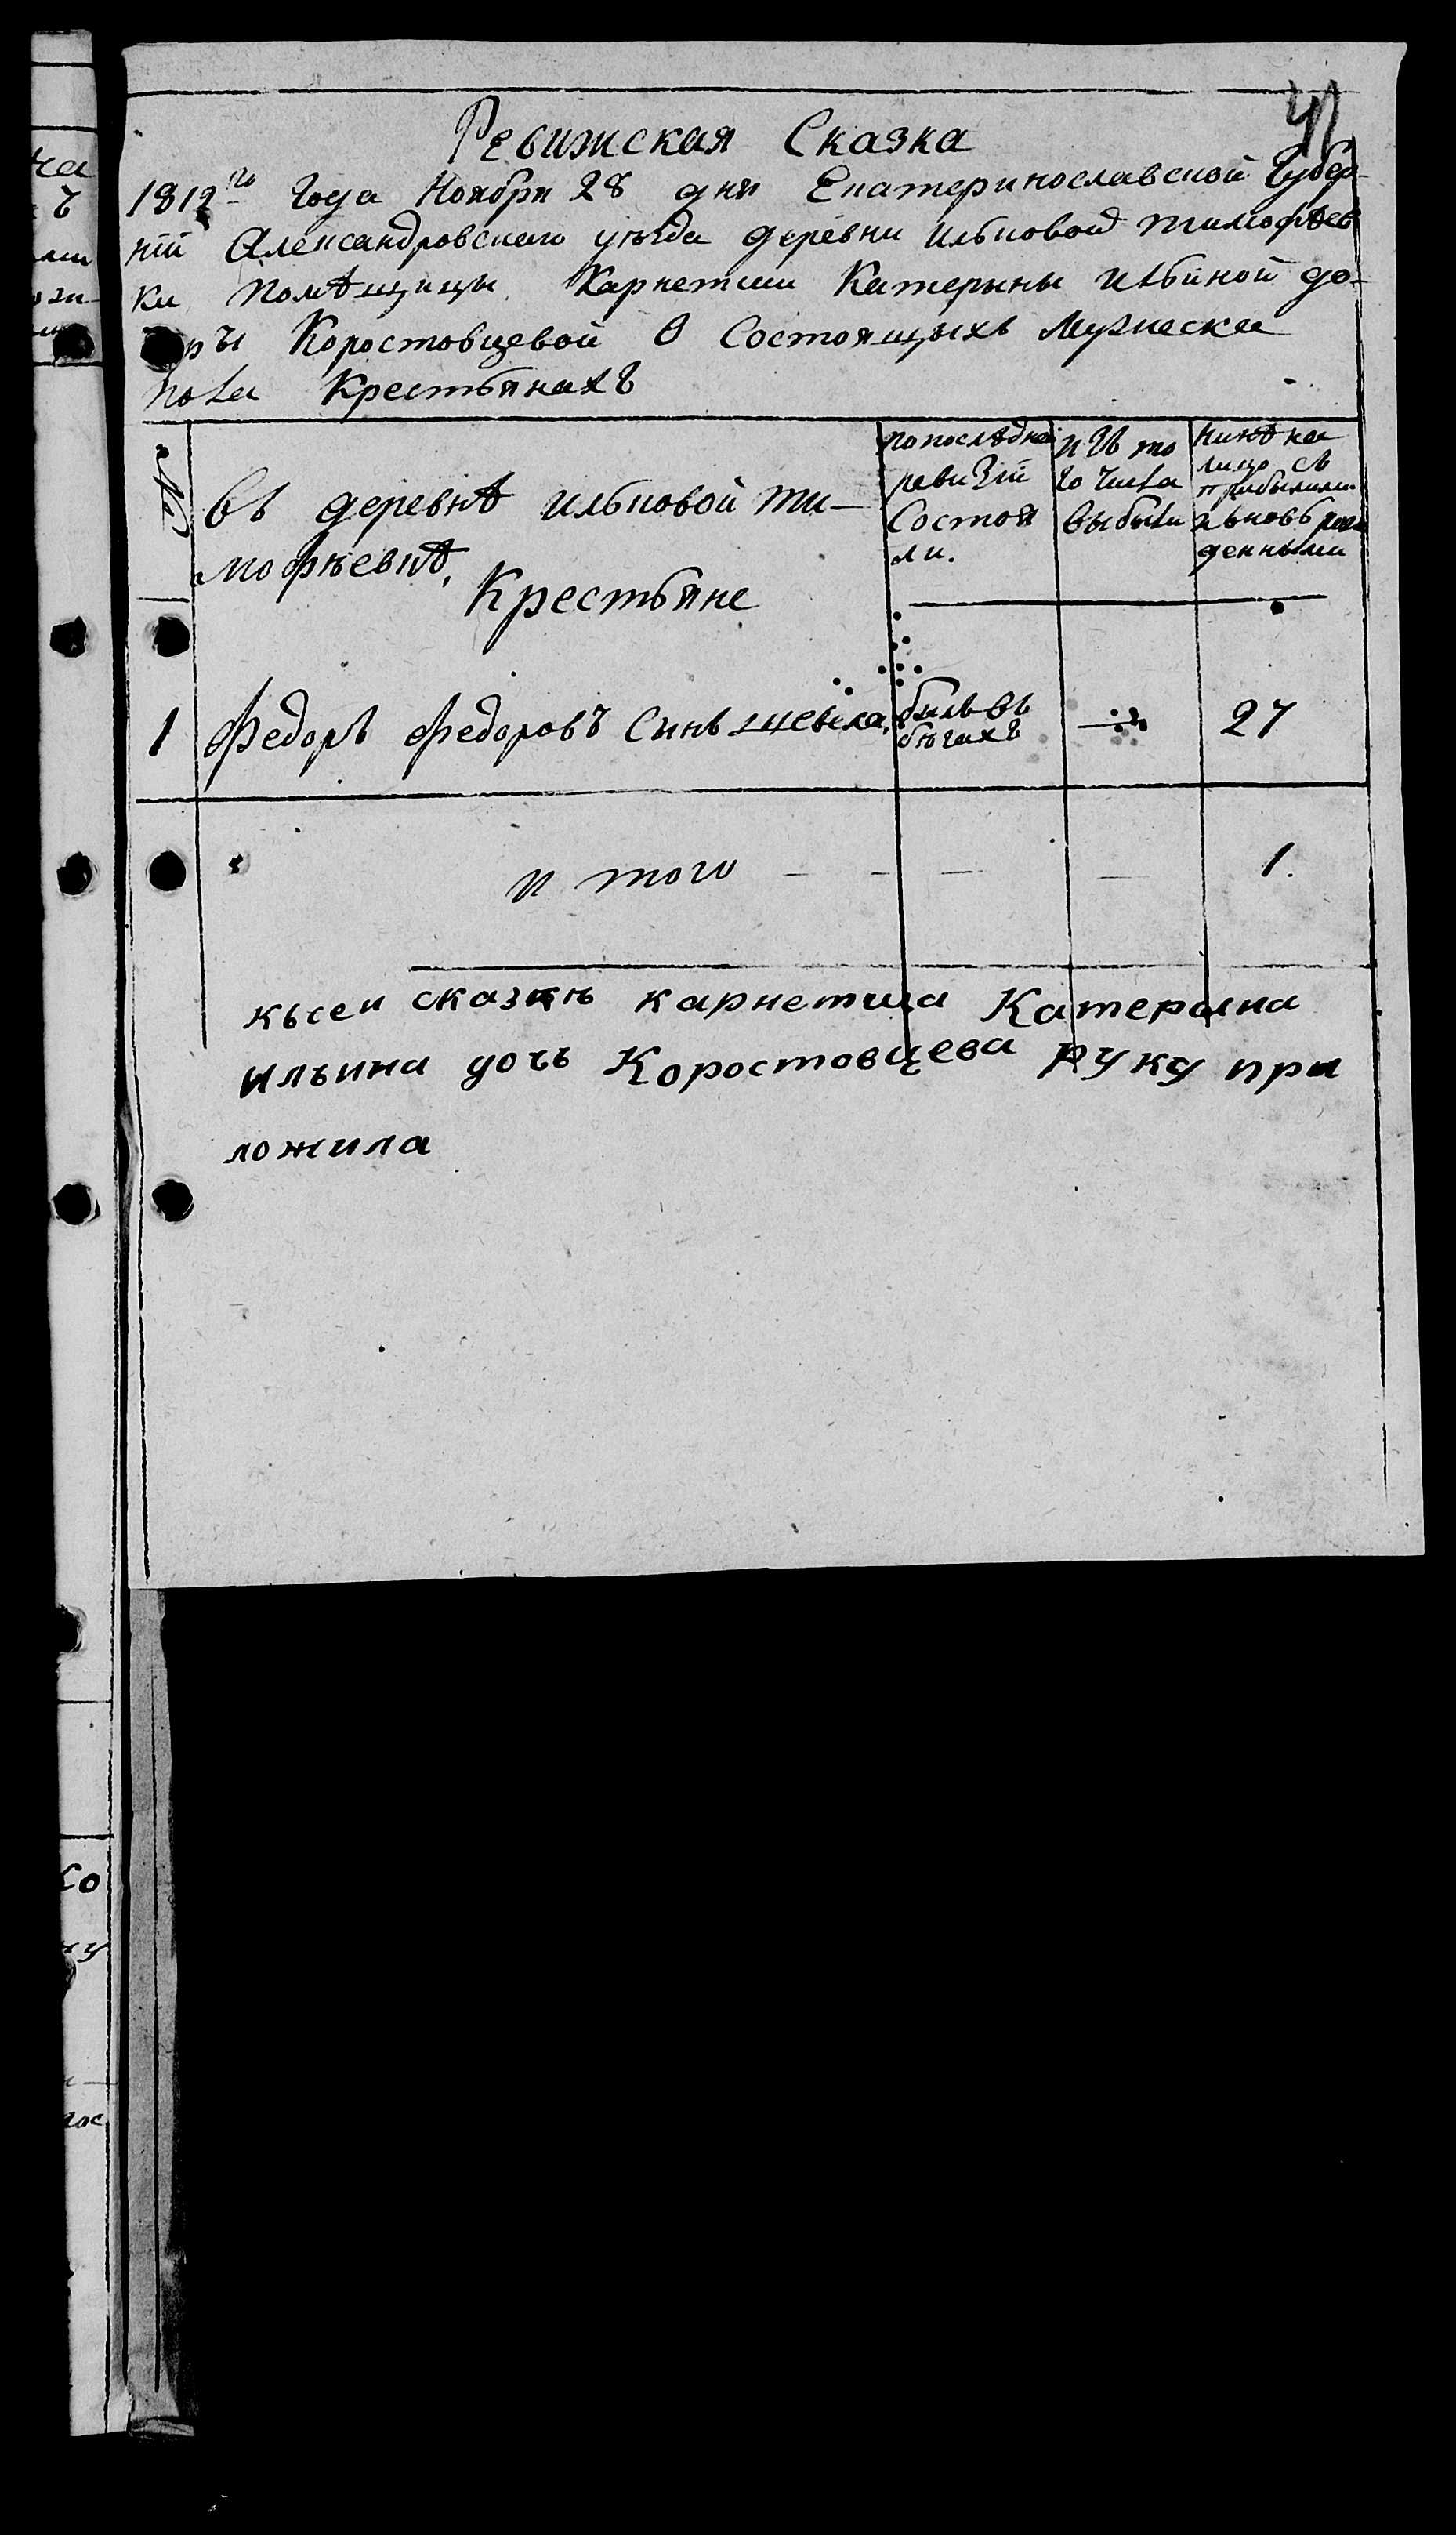 Ревижская Сказка
1812го года Ноября 28 дня Екатеринославской Губер-
нїи Александровскаго уѣзда деревни Ильковой тимофѣев
ки помѣщицы Карнетши Катерыны Ильиной до-
ры Коростовцевой О Состоящыхъ Мужеска
пола Крестьянахъ
№
въ деревнѣ ильковой ти-
мофѣевнѣ,
Крестьяне
по последней
ревизїи
Состоя
ли.
изъ то
го числа
выбыли
Нинѣ на
лицо съ
прибылими
и вновь рож
денными
1 Федоръ Федоровъ Синъ был въ бѣгахъ — 27
и того - - — — 1.
къ сеи сказкѣ карнетша Катерына
ильина дочь Коростовцева руку при
ложила